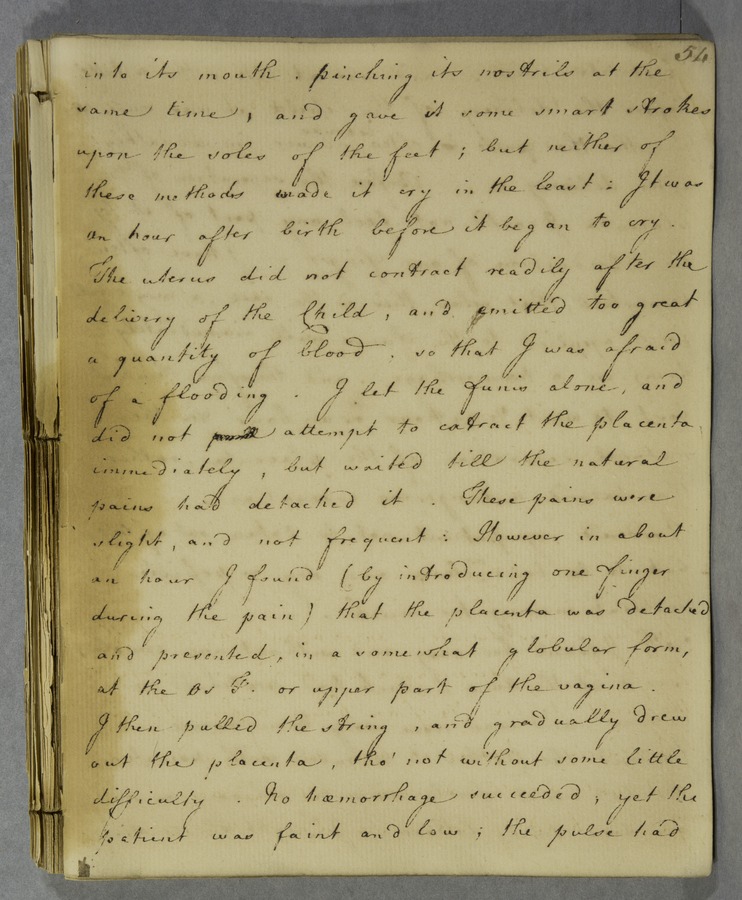 54
into its mouth. pinching its nostrils at the
same time, and gave it some smart strokes
upon the soles of the feet; but neither of
these methods made it cry in the least: It was
an hour after birth before it began to cry.
The uterus did not contract readily after the
delivery of the Child, and emitted too great
a quantity of blood. so that I was afraid
of a flooding. I let the funis alone, and
did not attempt to extract the placenta
immediately, but waited till the natural
pains had detached it. These pains were
slight, and not frequent: However in about
an hour I found (by introducing one finger
during the pain) that the placenta was detached
and presented, in a somewhat globular form,
at the Os T. or upper part of the vagina.
I then pulled the string, and gradually drew
out the placenta, tho' not without some little
difficulty. No hæmorrhage succeeded, yet the
patient was faint and low; the pulse had